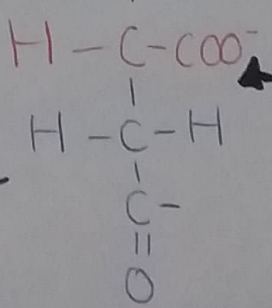 H-C-COO⁻
|
H-C-H
|
C-
||
O